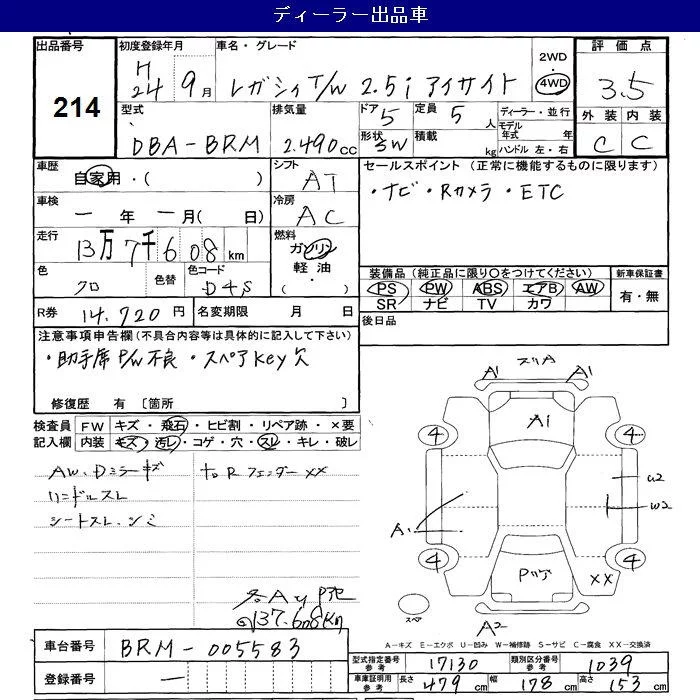 ディーラー出品車
出品番号 初度登録年月 車名・グレード 2WD 評価点
214 H24 9月 レガシィ T/W 2.5i アイサイト 4WD 3.5
型式 排気量 ドア 5 定員 5人 ディーラー・並行 外装 内装
DBA-BRM 2.490cc 形状 5W 積載 kg モデル年式 年 ハンドル 左・右 C C
車歴 自家用・( ) シフト AT セールスポイント (正常に機能するものに限ります)
車検 一年一月( 日) 冷房 AC ・ナビ・Rカメラ・ETC
走行 13万7千608km 燃料 ガソリン 軽油・( )
色 クロ 色替 色コード D4S 装備品 (純正品に限り○をつけてください) 新車保証書
PS PW ABS エアB AW 有・無
SR ナビ TV カワ
R券 14.720円 名変期限 月 日 後日品
注意事項申告欄(不具合内容等は具体的に記入して下さい)
・助手席P/W不良・スペアKey欠
修復歴 有 [箇所 ]
検査員 FW キズ・飛石・ヒビ割・リペア跡・×要
記入欄 内装 キズ・汚レ・コゲ・穴・スレ・キレ・破レ
AW、Dミラーキズ
ハンドルスレ
シートスレ、シミ
137.608Km
A1 A1
A1
4 4
U2
W2
A1
4 4
XX
スペア
A2
A-キズ E-エクボ U-凹み W-補修跡 S-サビ C-腐食 XX-交換済
車台番号 BRM-005583
登録番号 一
型式指定番号 参考 17130 類別区分番号 参考 1039
車庫証明用 参考 長さ 479cm 幅 178cm 高さ 153cm